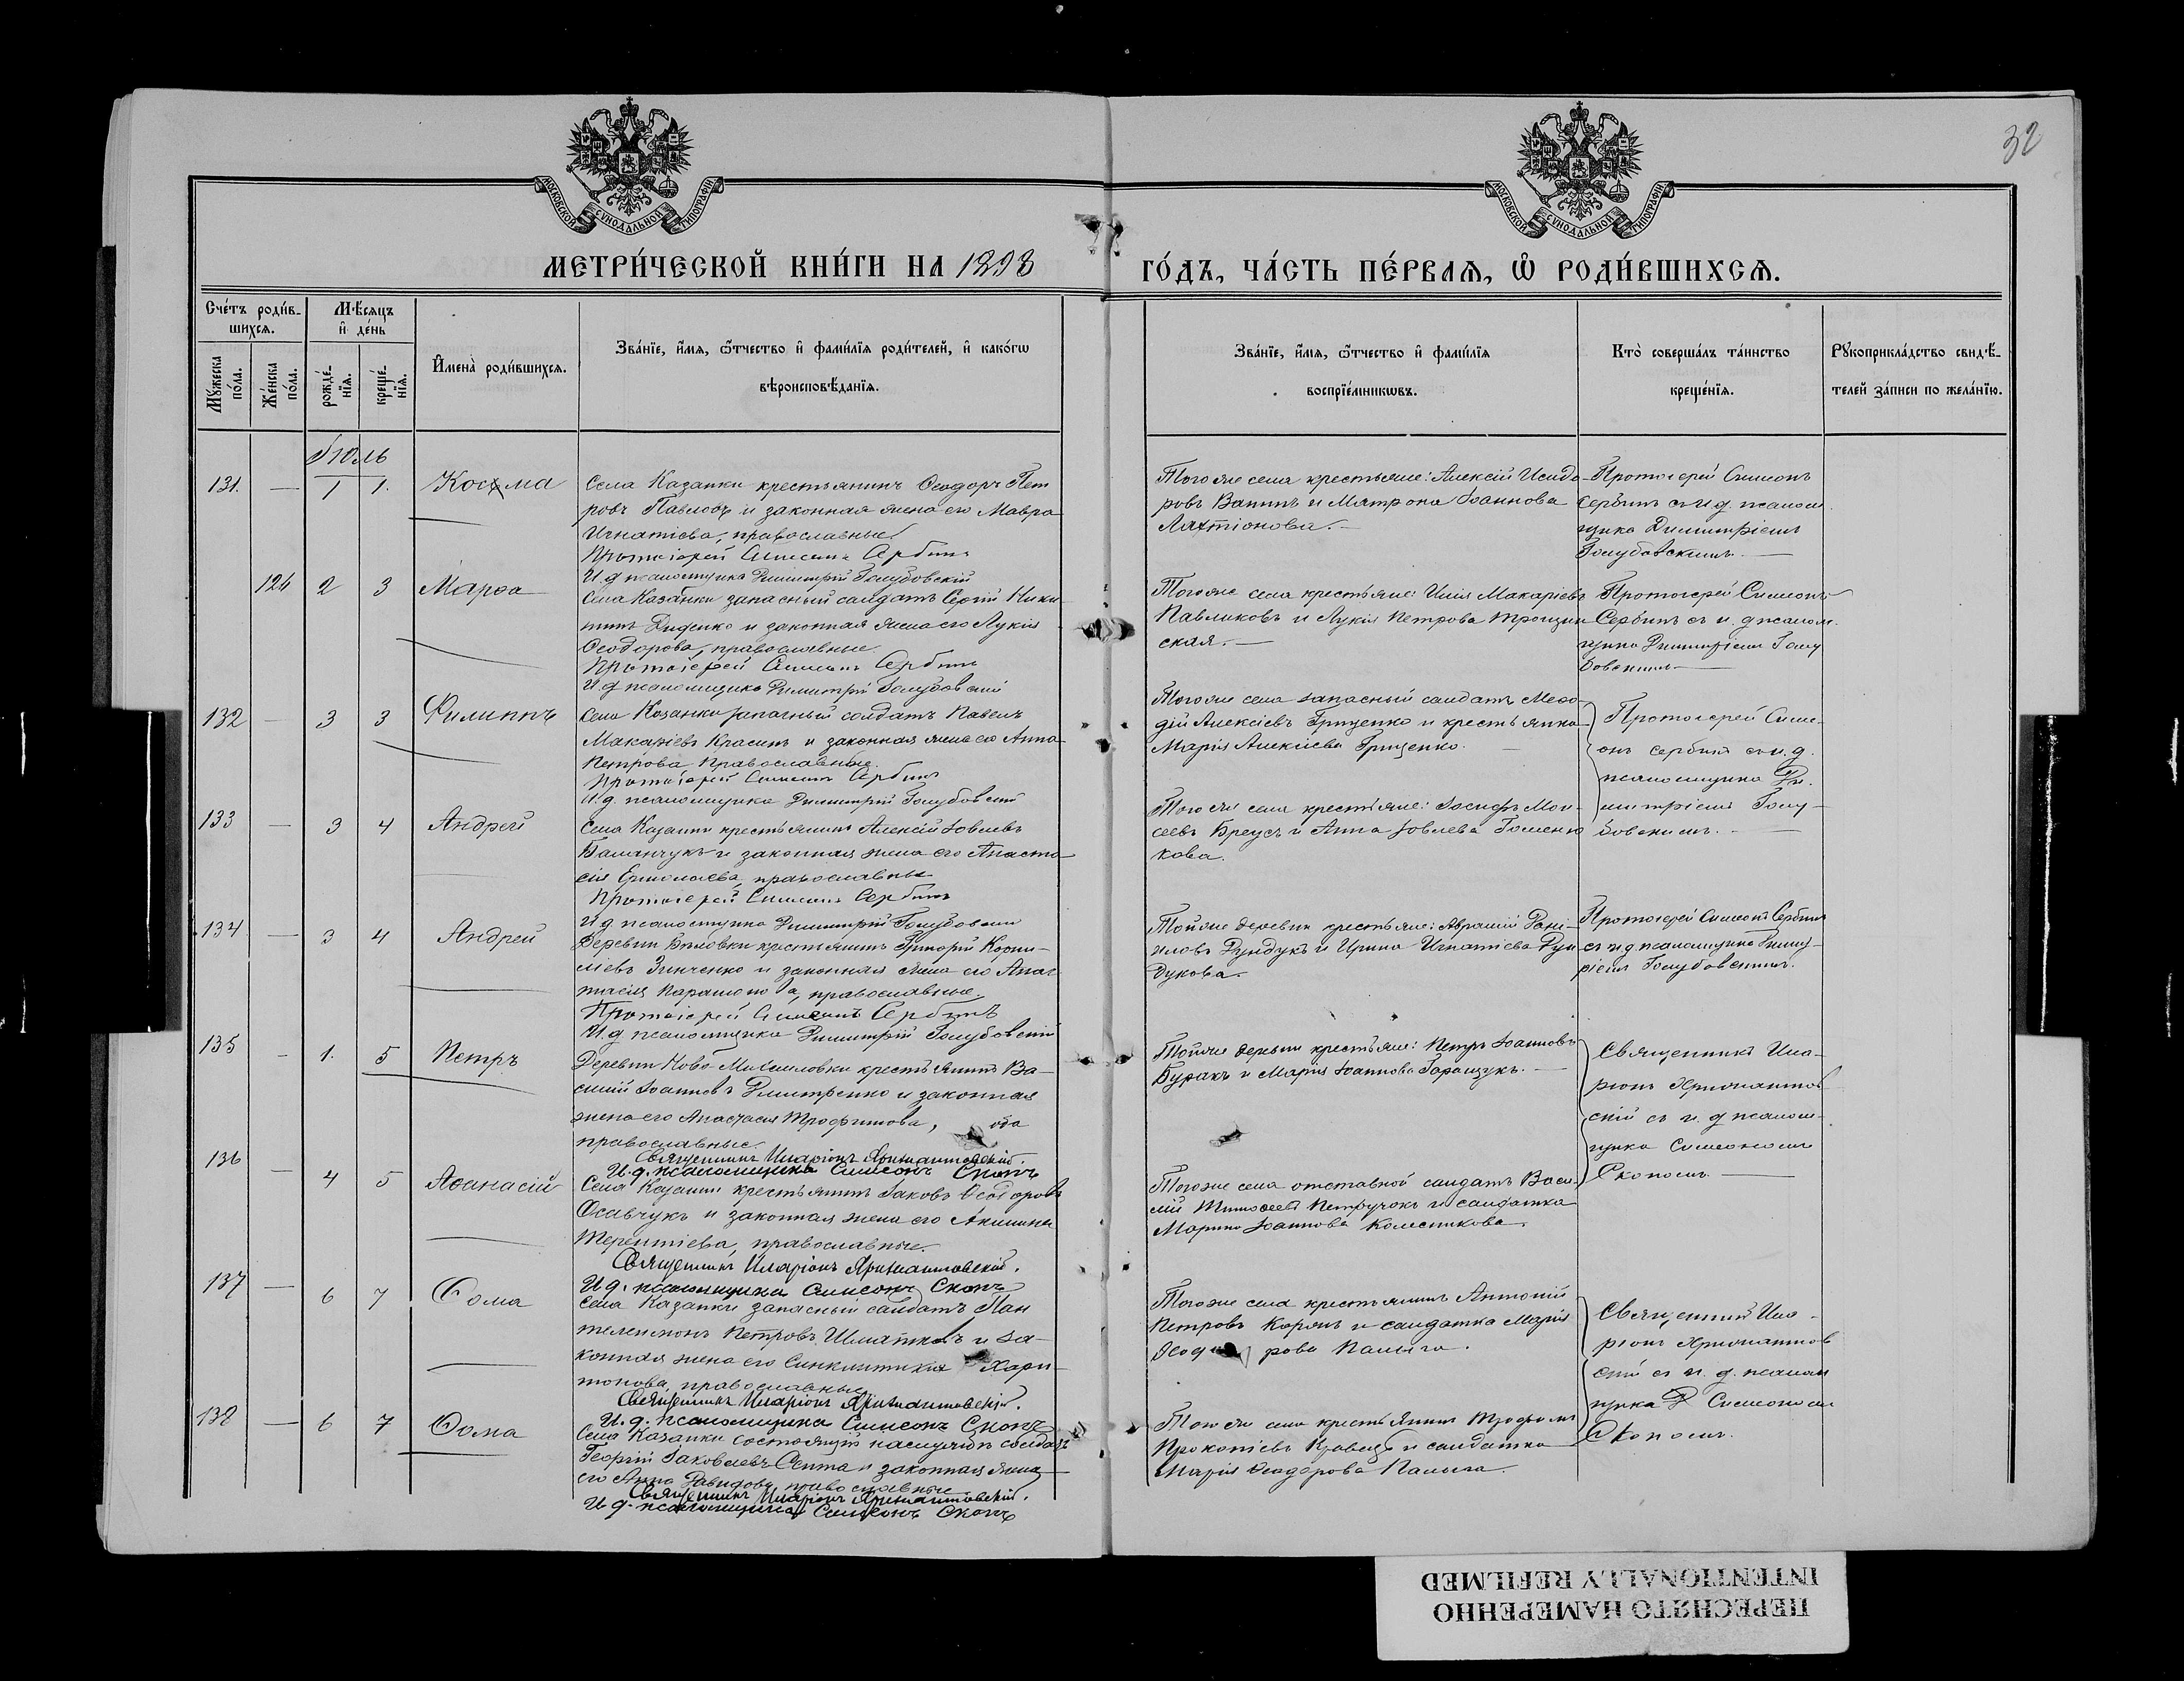 32
МОСКОВСКОЙ СѴНОДАЛЬНОЙ ТИПОГРАФІИ
МОСКОВСКОЙ СѴНОДАЛЬНОЙ ТИПОГРАФІИ
МЕТРИ́ЧЕСКОЙ КНИ́ГИ НА 1898
ГО́ДЪ, ЧА́СТЬ ПЕ́РВАѦ, Ѽ РОДИ́ВШИХСѦ.
Сче́тъ роди́в-
шихсѧ.
Мѣ́сѧцъ
и҆ де́нь
Мꙋ́жеска по́ла.
Же́нска по́ла.
рожде́-нїѧ.
креще́-нїѧ.
И҆мена̀ роди́вшихсѧ.
Зва́нїе, и҆́мѧ, ѻ҆́тчество и҆ фами́лїѧ роди́телей, и҆ како́гѡ
вѣроисповѣ́данїѧ.
Зва́нїе, и҆́мѧ, ѻ҆́тчество и҆ фами́лїѧ
воспрїе́мникѡвъ.
Кто̀ соверша́лъ та́инство
креще́нїѧ.
Рꙋкоприкла́дство свидѣ́-
телей за́писи по жела́нїю.
Іюль
131. — 1 1. Косма
Села Казанки крестьянинъ Ѳеодоръ Пет
ровъ Павловъ и законная жена его Мавра
Игнатіева, православные
Протоіерей Симеонъ Сербинъ
И.д. псаломщика Димитрій Голубовскій
Того же села крестьяне: Алексій Исидо-
ровъ Ванинъ и Матрона Іоаннова
Протоіерей Симеонъ
Сербинъ съ и.д. псалом
щика Димитріемъ
Голубовскимъ.
124 2 3 Марѳа
Села Казанки запасный солдатъ Сергій Ники
тинъ Диденко и законная жена его Лукія
Ѳеодорова, православные
Протоіерей Симеонъ Сербинъ
И.д. псаломщика Димитрій Голубовскій
Того же села крестьяне: Илія Макаріевъ
Павликовъ и Лукія Петрова Троцин
ская.
Протоіерей Симеонъ
Сербинъ съ и.д. псалом-
щика Димитріемъ Голу
бовскимъ
132 — 3 3 Филиппъ
Села Казанки запасный солдатъ Павелъ
Макаріевъ Красинъ и законная жена его Анна
Петрова православные.
Протоіерей Симеонъ Сербинъ
И.д. псаломщика Димитрій Голубовскій
Того же села запасный солдатъ Меѳо-
дій Алексіевъ Гриценко и крестьянка
Марія Алексіева Гриценко.
Протоіерей Симе-
онъ Сербинъ съ и.д.
псаломщика Ди-
митріемъ Голу-
бовскимъ.
133 — 3 4 Андрей
Села Казанки крестьянинъ Алексій Іовлевъ
Баланчукъ и законная жена его Анаста
сія Ермолаева, православные
Протоіерей Симеонъ Сербинъ
И.д. псаломщика Димитрій Голубовскій
Того же села крестьяне: Іосифъ Мои-
сеевъ Бреусъ и Анна Іовлева
кова.
134 — 3 4 Андрей
Деревни крестьянинъ Григорій Корни-
ліевъ Зинченко и законная жена его Анас
тасія Парамонова, православные.
Протоіерей Симеонъ Сербинъ
И.д. псаломщика Димитрій Голубовскій
Той же деревни крестьяне: Аврамій Дані-
иловъ Рундукъ и Ирина Игнатіева Рун
дукова.
Протоіерей Симеонъ Сербинъ
съ и.д. псаломщика Димит-
ріемъ Голубовскимъ.
135 — 1. 5 Петръ
Деревни Ново-Михаиловки крестьянинъ Ва-
силій Іоанновъ Дмитренко и законная
жена его Анастасія Трофимова, оба
православные
Священникъ Иларіонъ
И.д. псаломщика Симеонъ Скопъ
Той же деревни крестьяне: Петръ Іоанновъ
Буракъ и Марія Іоаннова Геращукъ.
Священникъ Ила-
ріонъ
скій съ и.д. псалом-
щика Симеономъ
Скопомъ.
136 — 4 5 Аѳанасій
Села Казанки крестьянинъ Іаковъ Ѳеодоровъ
Осавчукъ и законная жена его Акилина
Терентіева, православные.
Священникъ Иларіонъ
И.д. псаломщика Симеонъ Скопъ
Того же села отставной солдатъ Васи-
лій Тимоѳеевъ Петручокъ и солдатка
Марина Іоаннова Колесникова.
137 — 6 7 Ѳома
Села Казанки запасный солдатъ Пан
телеимонъ Петровъ и за-
конная жена его Синклитикія Хари-
тонова, православные
Священникъ Иларіонъ
И.д. псаломщика Симеонъ Скопъ
Того же села крестьянинъ Антоній
Петровъ и солдатка Марія
Ѳеодорова
Священникъ Ила-
ріонъ
скій съ и.д. псалом
щика Симеономъ
Скопомъ.
138 — 6 7 Ѳома
Села Казанки состоящій на службѣ солдатъ
Георгій Іаковлевъ Септа и законная жена
его Анна Давидова православные
Священникъ Иларіонъ
И.д. псаломщика Симеонъ Скопъ
Того же села крестьянинъ Трофимъ
Прокопіевъ Кравецъ и солдатка
Марія Ѳеодорова
ПЕРЕСНЯТО НАМЕРЕННО
INTENTIONALLY REFILMED